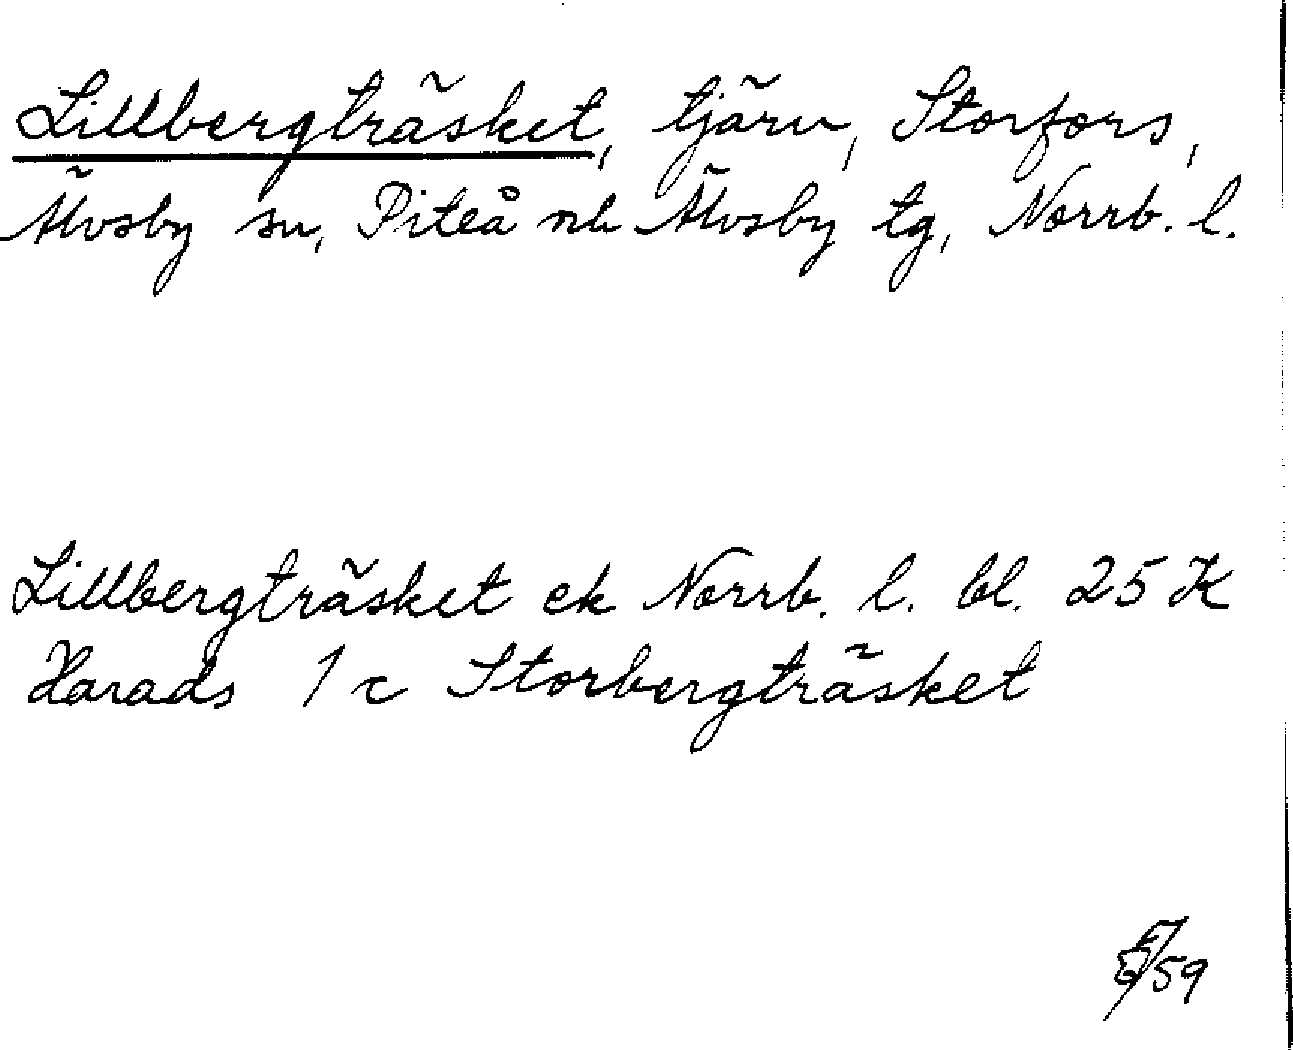 Lillbergträsket, tjärn, Storfors,
Älvsby sn, Piteå o Älvsby tg, Norrb. l.
Lillbergträsket ek Norrb. l. bl. 25 K
Harads 1 c Storbergträsket
/59